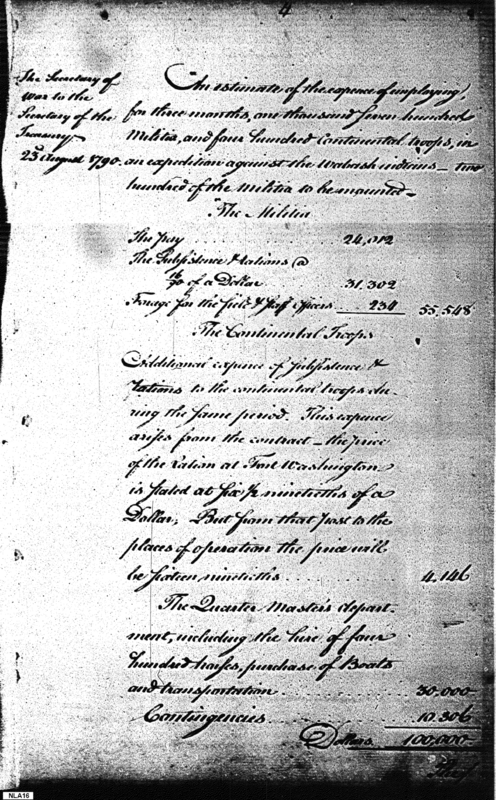 4
The Secretary of
War to the
Secretary of the
Treasury
23d August 1790.
An estimate of the expence of employing,
for three months, one thousand seven hundred
Militia, and four hundred Continental troops, in
an expedition against the Wabash indians — two
hundred of the Militia to be mounted —
The Militia
The pay 24,012
The Subsistence & rations @
16/90 of a Dollar 31,302
Forage for the field & staff officers 234 55,548
The Continental Troops
Additional expence of Subsistence &
rations to the continental troops du-
ring the same period. This expence
arises from the contract — the price
of the ration at Fort Washington
is stated at six 1/2 ninetieths of a
Dollar; But from that post to the
places of operation the price will
be sixteen ninetieths 4,146
The Quarter Master's depart-
ment, including the hire of four
hundred horses, purchase of Boats
and transportation 30,000
Contingencies 10.306
Dollars 100,000.
NLA16